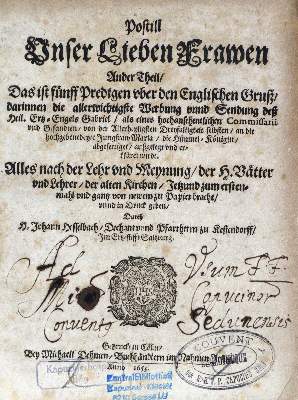 Postill
Unser Lieben Frawen
Ander Theil/
Das ist fünff Predigen vber den Englischen Gruß/
darinnen die allerwichtigste Werbung vnnd Sendung deß
Heil. Ertz-Engels Gabriel / als eines hochansehentlichen Commissarii
vnd Gesandten / von der Allerheiligsten Dreyfaltigkeit selbsten / an die
hochgebenedeyte Jungfraw Maria / die Himmel-Königin,
abgefertiget / außgelegt vnd er-
kläret wirdt.
Alles nach der Lehr vnd Meynung / der H. Vätter
vnd Lehrer / der alten Kirchen / Jetzund zum ersten-
mahl vnd gantz von newem zu Papier bracht /
vnnd in Druck geben /
Durch
H. Johann Hesselbach / Dechant vnd Pfarrherrn zu
Im Ertz-stifft Saltzburg.
Ad Usum FF.
Convento Sedunensis
COUVENT
Getruckt zu Cölln /
Bey Michaell Dehmen / Buchhändlern im Nahmen
Anno
Zentralbibliothek
Kapuziner-Kloster